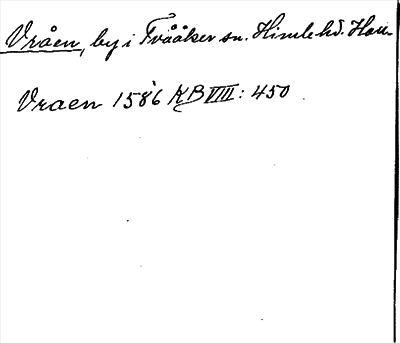 Vråen, by i Tvååker sn. Himle hd. Hall.
Vraen 1586 KB VIII: 450